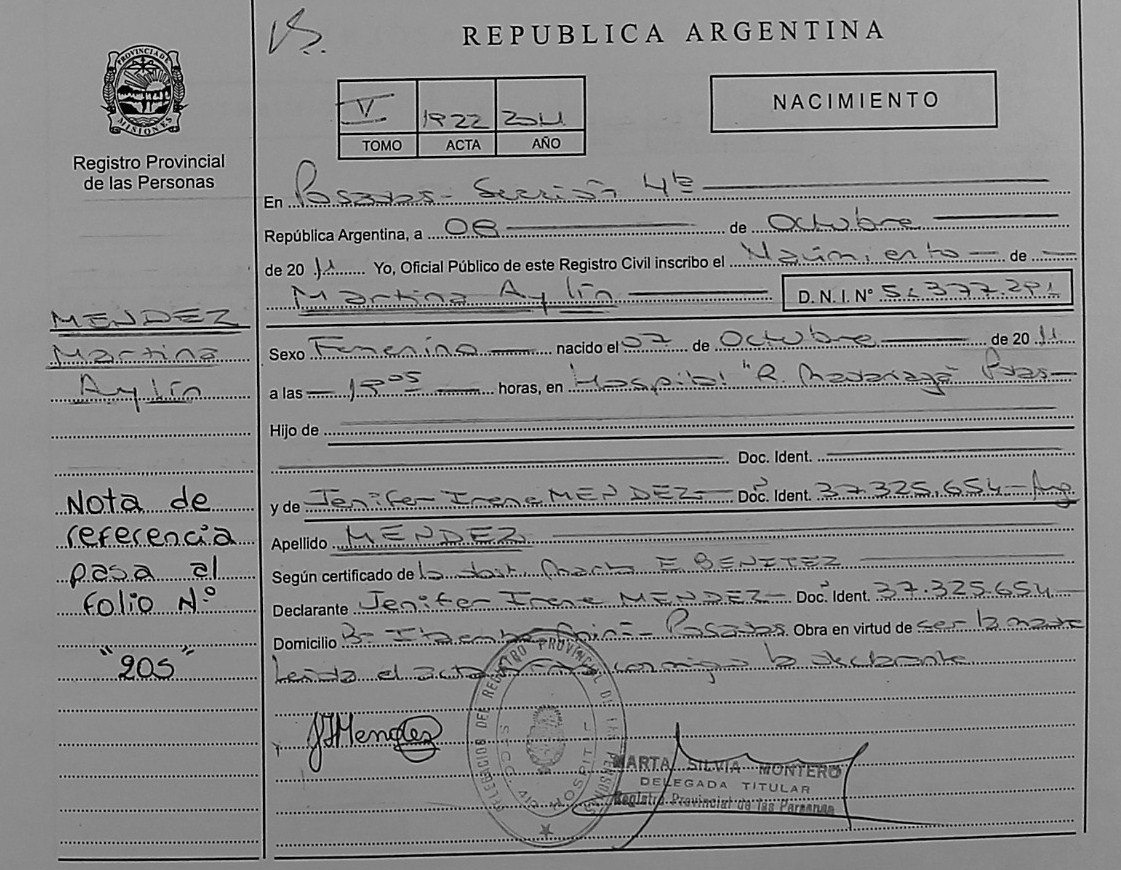 VS.
REPUBLICA ARGENTINA
PROVINCIA DE MISIONES
Registro Provincial
de las Personas
V 1922 2011
TOMO ACTA AÑO
NACIMIENTO
En Posadas - Sección 4ta
República Argentina, a 08 de Octubre
de 2011 Yo, Oficial Público de este Registro Civil inscribo el Nacimiento de
Martina Aylín D. N. I. N°
MENDEZ
Martina
Aylín
Sexo Femenino nacido el 07 de Octubre de 2011
a las 19 05 horas, en Hospital "R. Madariaga" Pdas
Hijo de
Doc. Ident.
y de Jenifer Irene MENDEZ Doc. Ident. 37.325.654 - Arg
Apellido MENDEZ
Según certificado de la obst. Marta E BENITEZ
Declarante Jenifer Irene MENDEZ Doc. Ident. 37.325.654
Domicilio B- Posadas. Obra en virtud de ser la madre
Leída el acta conmigo la declarante
Nota de
referencia
pasa al
folio N°
"205"
JIMendez
DELEGACION DEL REGISTRO PROVINCIAL DE LAS PERSONAS
SECC. 4ta HOSPITAL
MARTA SILVIA MONTERO
DELEGADA TITULAR
Registro Provincial de las Personas